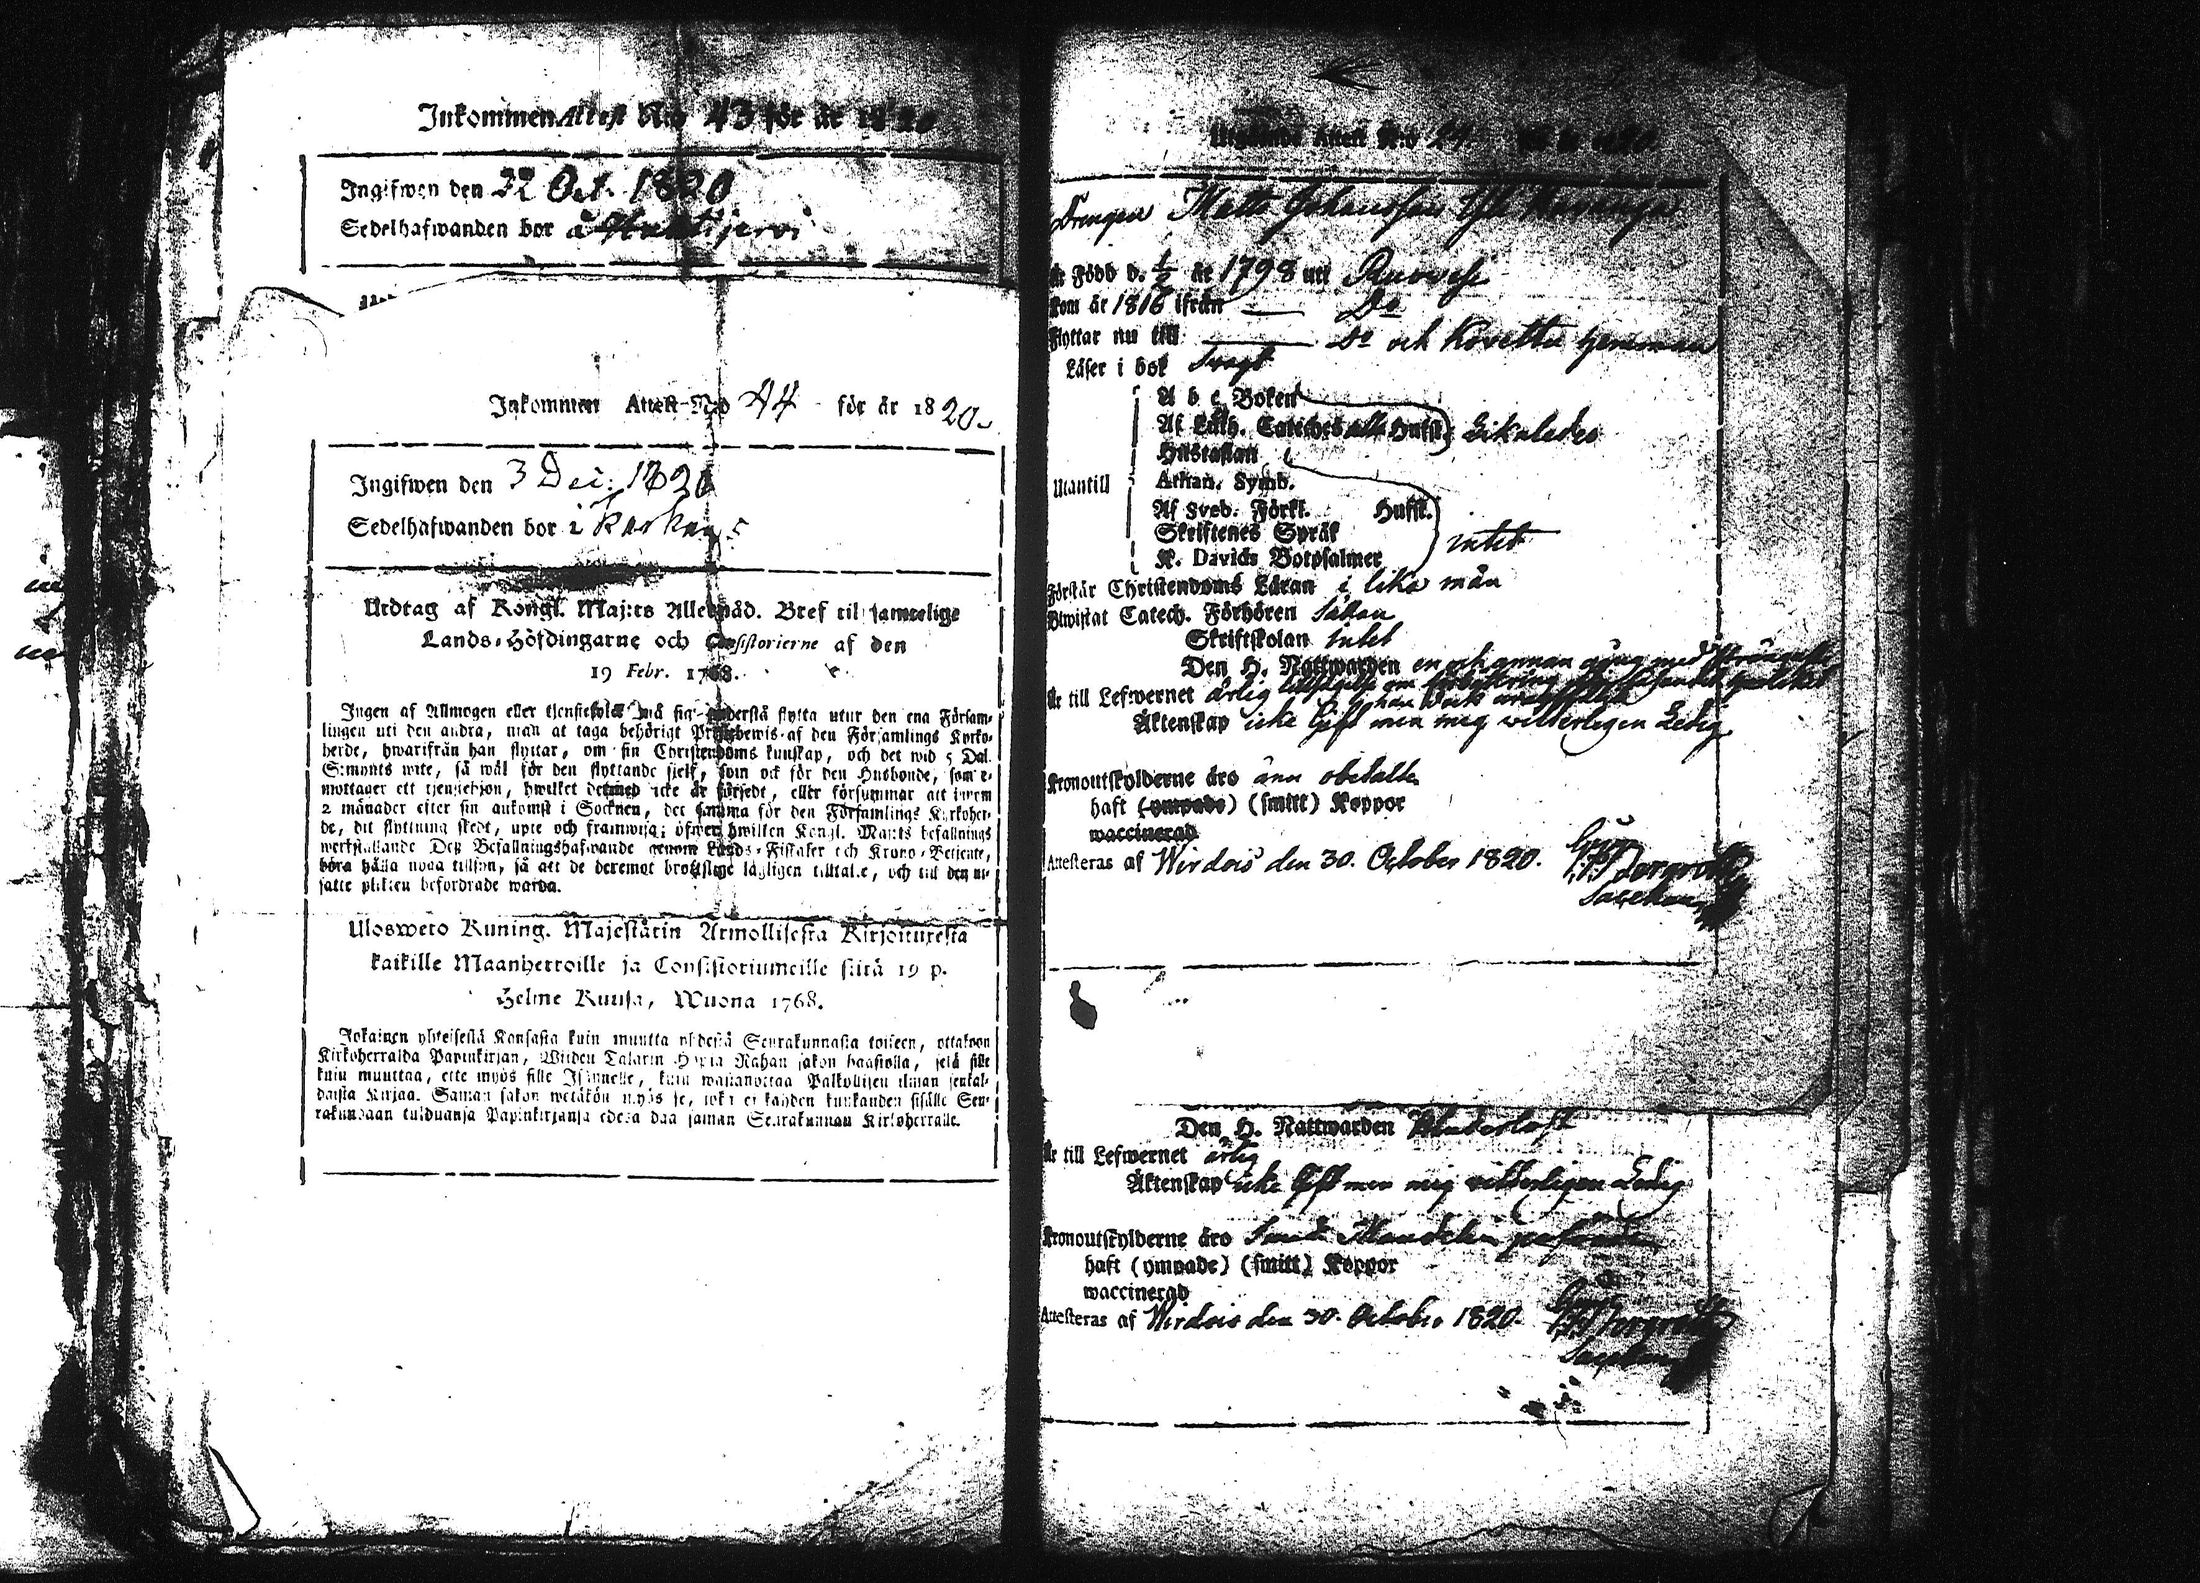 Inkommen Attest N:o 43 för år 1820
Ingifwen den 22 Oct. 1820
Sedelhafwanden bor å
Inkommen Attest N:o 44 för år 1820.
Ingifwen den 3 Dec. 1820
Sedelhafwanden bor i
Utdtag af Kongl. Maj:ts Allernåd. Bref til samtelige
Lands-Höfdingarne och Consistorierne af den
19 Febr. 1768.
Ingen af Allmogen eller tjenstefolck må sig understå flytta utur den ena Försam-
lingen uti den andra, utan at taga behörigt Prestbewis af den Församlings Kyrko-
herde, hwarifrån han flyttar, om sin Christendoms kunskap, och det wid 5 Dal.
S:mynts wite, så wäl för den flyttande sjelf, som ock för den Husbonde, som e-
mottager ett tjenstehjon, hwilket dermed icke är försedt, eller försummar att inom
2 månader efter sin ankomst i Socknen, det samma för den Församlings Kyrkoher-
de, dit flyttning skedt, upte och framwisa; öfwer hwilken Kongl. Maj:ts befallnings
werkställande Deß Befallningshafwande genom Lands-Fiskaler och Krono-Betjente,
böra hålla noga tillsyn, så att de deremot brottslige lagligen tilltal.e, och till den ut-
satte plikten befordrade warda.
Ulosweto Kuning. Majestätin Armollisesta Kirjoituxesta
kaikille Maanherroille ja Consistoriumeille siitä 19 p.
Helme Kuusa, Wuona 1768.
Jokainen yhteisestä Kansasta kuin muutta yhdestä Seurakunnasta toiseen, ottakoon
Kirkoherralda Papinkirjan, Wiiden Talarin Hopia Rahan sakon haastolla, sekä sille
kuin muuttaa, ette myös sille Isännelle, kuin wastanottaa Palkollisen ilman senkal-
daista Kirjaa. Saman sakon wetäkön myös se, joka ei kahden kuukauden sisälle Seu-
rakundaan tulduansa Papinkirjansa edestä saman Seurakunnan Kirkoherralle.
Utgående Attest N:o 24. 1820.
Drengen Matts Johansson
är Född d. 1/2 år 1798 uti Ruowesi
kom år 1816 ifrån — Do
Flyttar nu till — Do och hemman
Läser i bok Swagt
A b c Boken
Af Luth. Cateches alla Hufst. likaledes
Hustaflan
Utantill
Athan. Symb.
Af Sveb. Förkl. Hufst.
Skriftenes Språk intet
K. Davids Botpsalmer
Förstår Christendoms Läran i like mån
Biwistat Catech. Förhören Sällan
Skriftskolan intet
Den H. Nattwarden en och annan gång med
är till Lefwernet ärlig
Äktenskap icke Gift men mig vitterligen Ledig
Kronoutskylderne äro änn obetalte
haft (ympade) (smitt) Koppor
waccinerad
Attesteras af Wirdois den 30. October 1820.
Den H. Nattwarden
är till Lefwernet ärlig
Äktenskap icke Gift men mig vitterligen Ledig
Kronoutskylderne äro
haft (ympade) (smitt) Koppor
waccinerad
Attesteras af Wirdois den 30. October 1820.